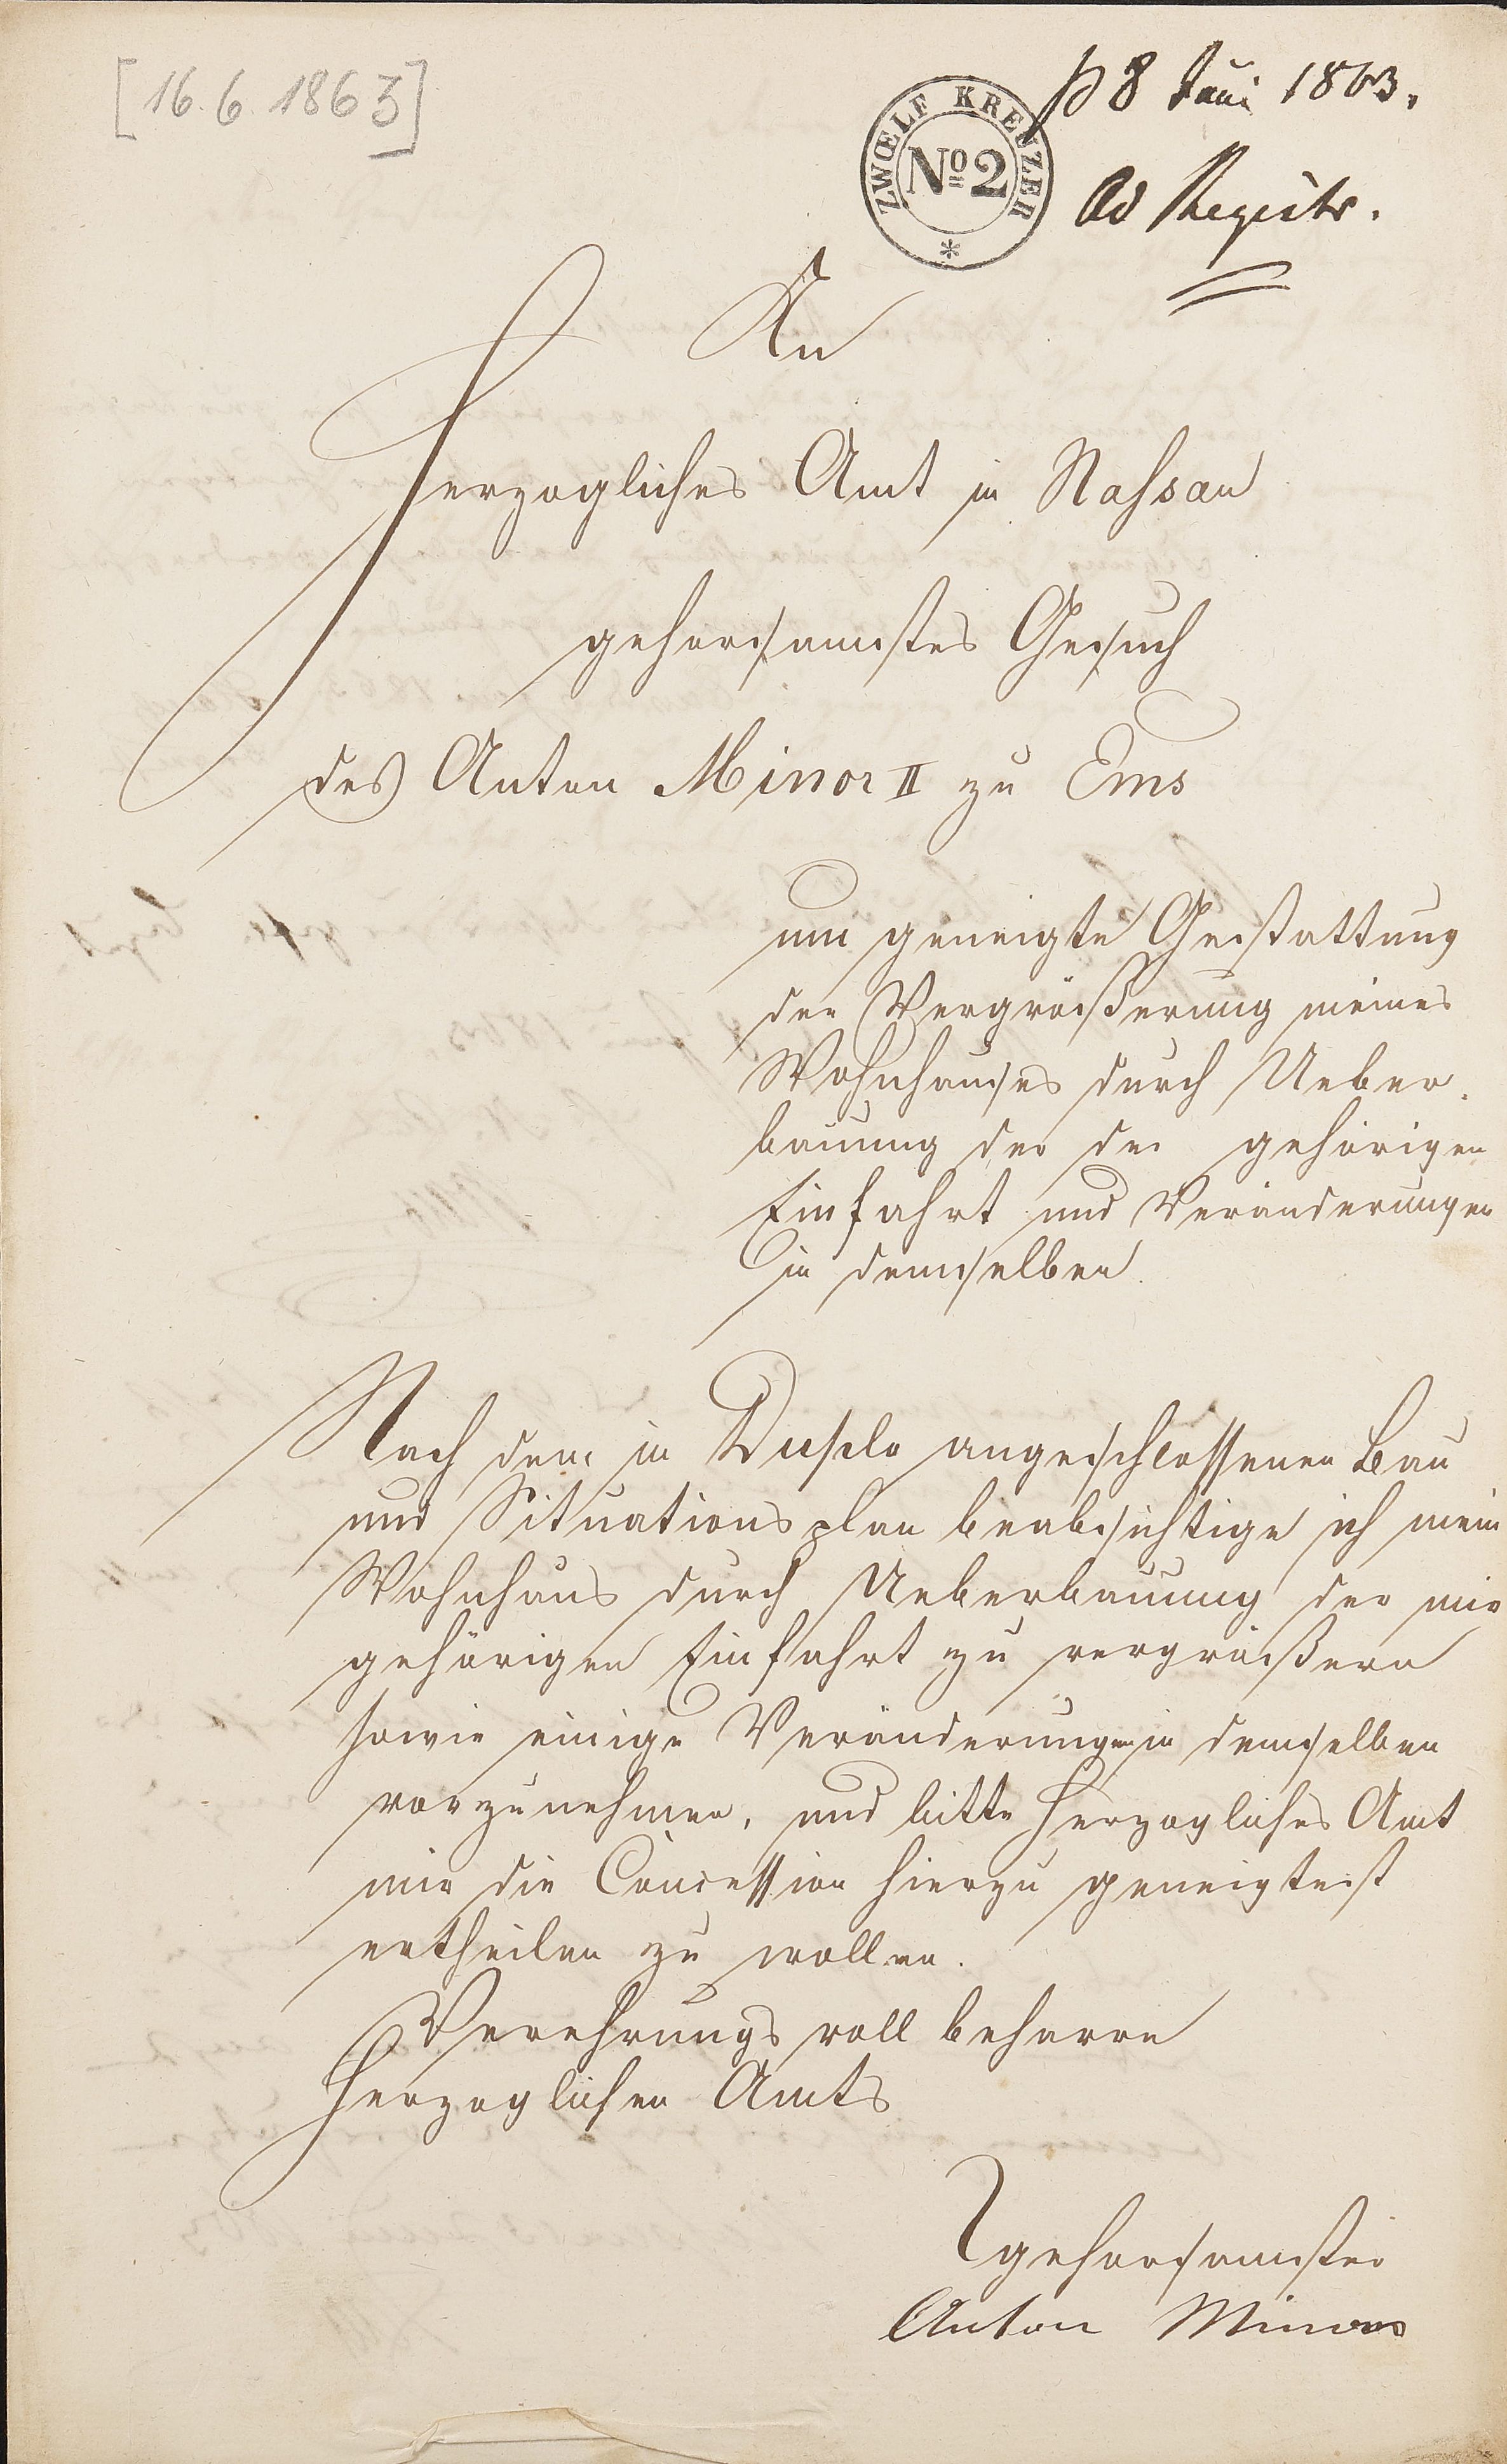 [16.6.1863]
8 Juni 1863.
ZWŒLF KREUZER
No 2
Ad Registr.
An
Herzogliches Amt in Nassau
gehorsamstes Gesuch
des Anton Minor II zu Ems
um geneigte Gestattung
der Vergrößerung meines
Wohnhauses durch Ueber-
bauung der gehörigen
Einfahrt und Veränderungen
in demselben.
Nach dem in Duplo angeschlossenen Bau
und Situationsplan beabsichtige ich mein
Wohnhaus durch Ueberbauung der mir
gehörigen Einfahrt zu vergrößern
sowie einige Veränderungen in demselben
vorzunehmen, und bitte Herzogliches Amt
mir die Concession hierzu geneigtest
ertheilen zu wollen.
Verehrungsvoll beharre
Herzoglichen Amts
gehorsamster
Anton Minor